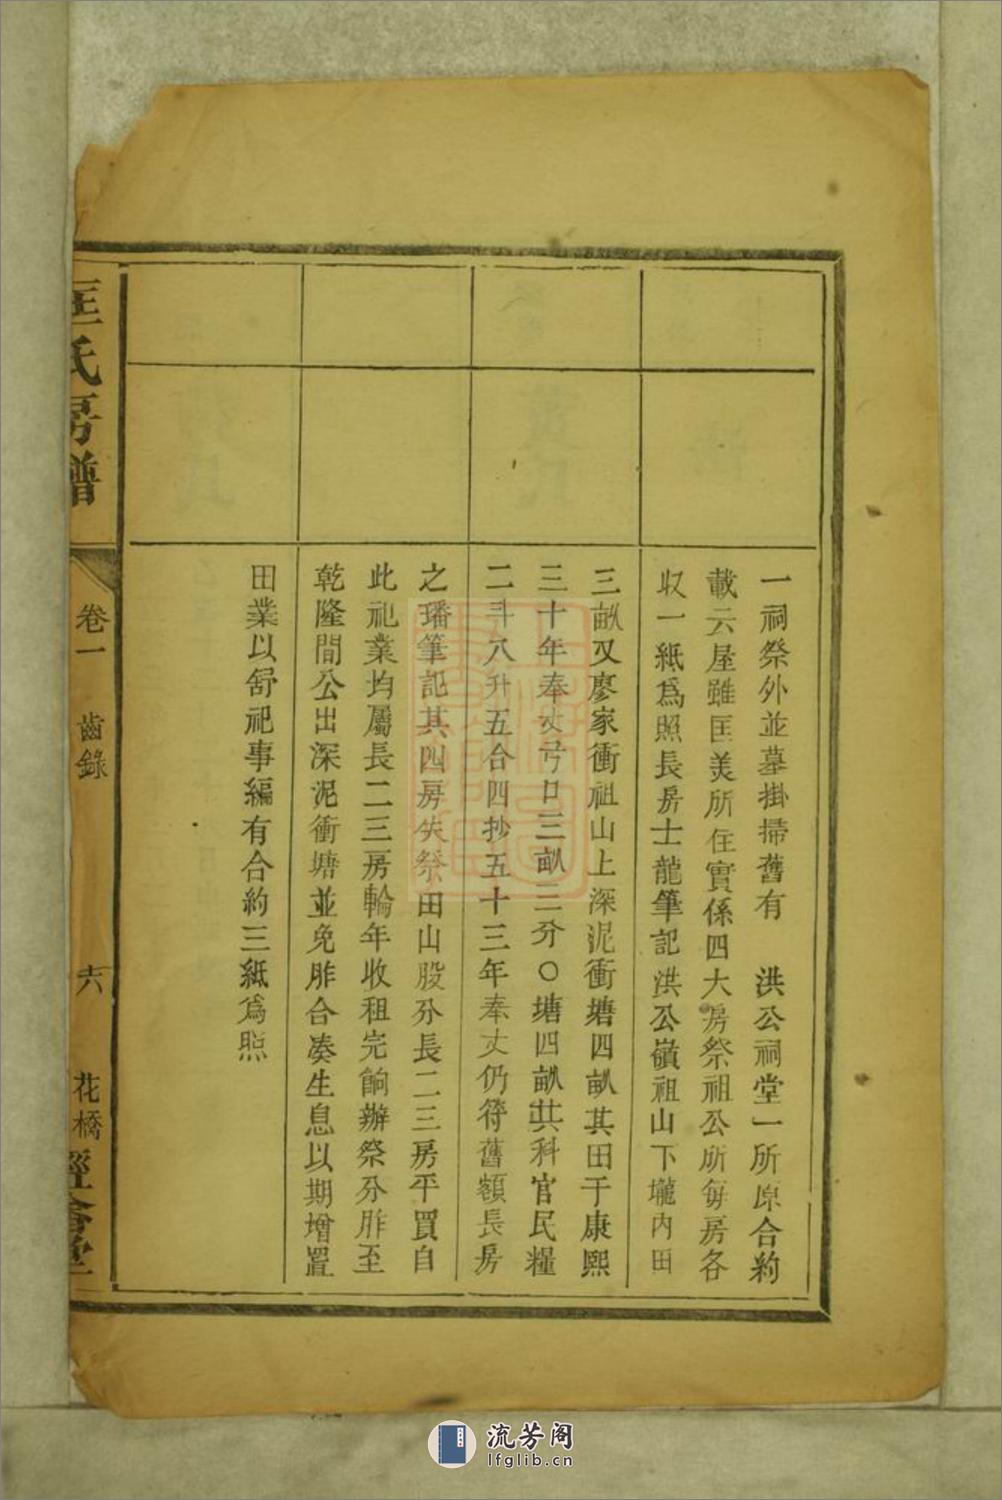 一祠祭外並墓掛掃舊有 洪公祠堂一所原合約
載云屋雖匡美所住實係四大房祭祖公所每房各
收一紙爲照長房士龍筆記洪公嶺祖山下壠内田
三畝又廖家衝祖山上深泥衝塘四畝其田于康熙
三十年奉丈弓口三畝三分〇塘四畝共科官民糧
二斗八升五合四抄五十三年奉丈仍符舊額長房
之璠筆記其四房失祭田山股分長二三房平買自
此祀業均屬長二三房輪年收租完餉辦祭分胙至
乾隆間公出深泥衝塘並免胙合凑生息以期增置
田業以舒祀事編有合約三紙爲照
匡氏房譜
卷一 齒錄
六
花橋
經會堂
流芳阁
lfglib.cn